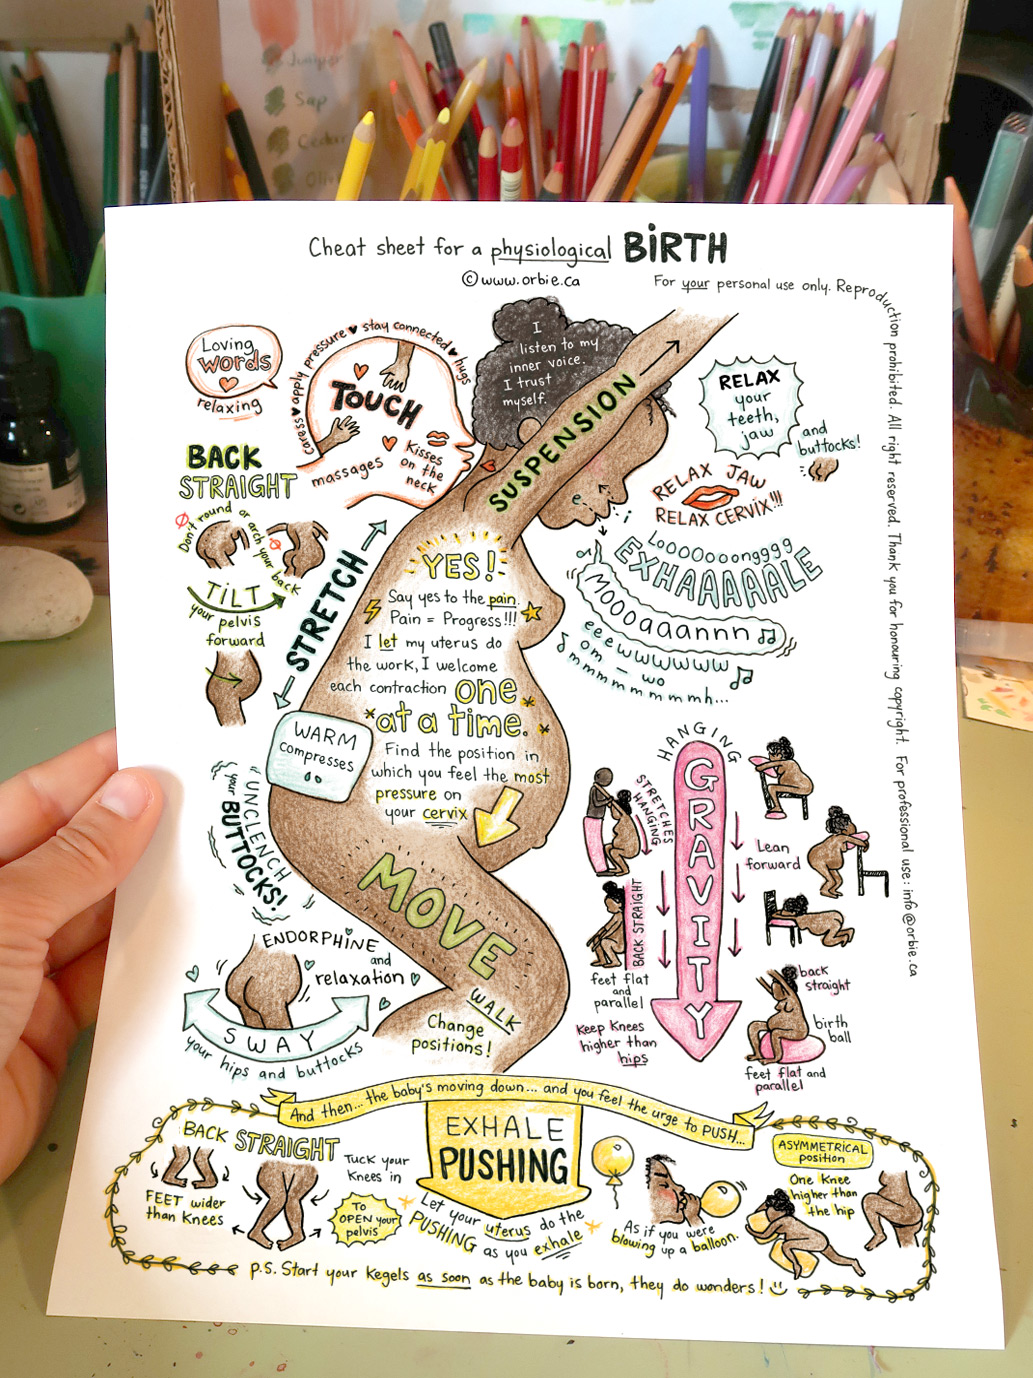 Juniper
Sap
Cedar
Cheat sheet for a physiological BiRTH
©www.orbie.ca
For your personal use only. Reproduction prohibited. All right reserved. Thank you for honouring copyright. For professional use: info@orbie.ca
Loving
words
relaxing
caress ♥ apply pressure ♥ stay connected ♥ hugs
TOUCH
massages
Kisses
on the
neck
I
listen to my
inner voice.
I trust
myself.
SUSPENSION
RELAX
your
teeth,
jaw
and
buttocks!
RELAX JAW
RELAX CERVIX!!!
BACK
STRAIGHT
Don't round or arch your back
TILT
your pelvis
forward
STRETCH
YES!
Say yes to the pain.
Pain = Progress!!!
I let my uterus do
the work, I welcome
each contraction one
at a time.
Find the position in
which you feel the most
pressure on
your cervix
LoOOOooongggg
EXHAAAAALE
MOOOaaannn
eeewwwwww
om – wo
mmmmmmmmh...
WARM
compresses
UNCLENCH
your
BUTTOCKS!
MOVE
WALK
Change
positions!
ENDORPHINE
and
relaxation
SWAY
your hips and buttocks
HANGING
GRAVITY
STRETCHES
HANGING
BACK STRAIGHT
feet flat
and
parallel
Keep Knees
higher than
hips
Lean
forward
back
straight
birth
ball
feet flat and
parallel
And then... the baby's moving down... and you feel the urge to PUSH...
BACK STRAIGHT
FEET wider
than Knees
Tuck your
Knees in
TO
OPEN your
pelvis
EXHALE
PUSHING
Let your uterus do the
PUSHING as you exhale
As if you were
blowing up a balloon.
ASYMMETRICAL
position
One Knee
higher than
the hip
P.S. Start your Kegels as soon as the baby is born, they do wonders!